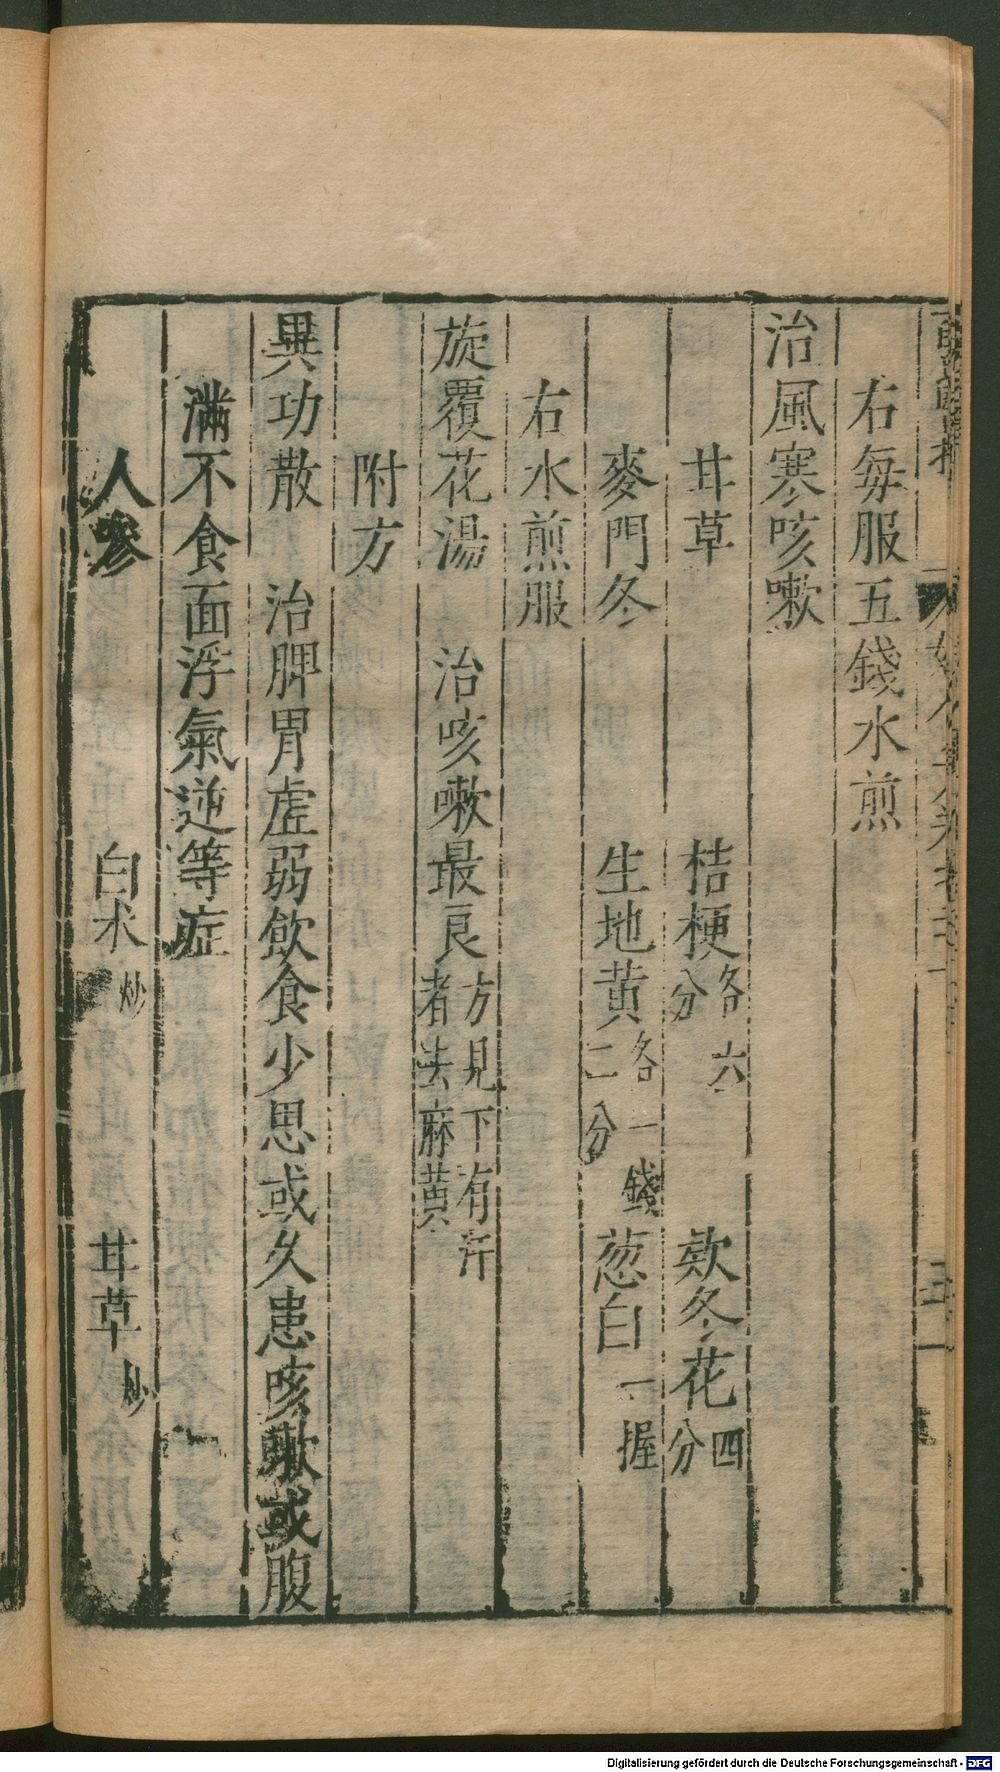 右每服五錢水煎
治風寒咳嗽
甘草 桔梗各六分 欵冬花四分
麥門冬 生地黄各一錢二分 葱白一握
右水煎服
旋覆花湯 治咳嗽最良方見下有汗者去麻黄
附方
異功散 治脾胃虛弱飲食少思或久患咳嗽或腹
滿不食面浮氣逆等症
人參 白朮炒 甘草炒
Digitalisierung gefördert durch die Deutsche Forschungsgemeinschaft - DFG